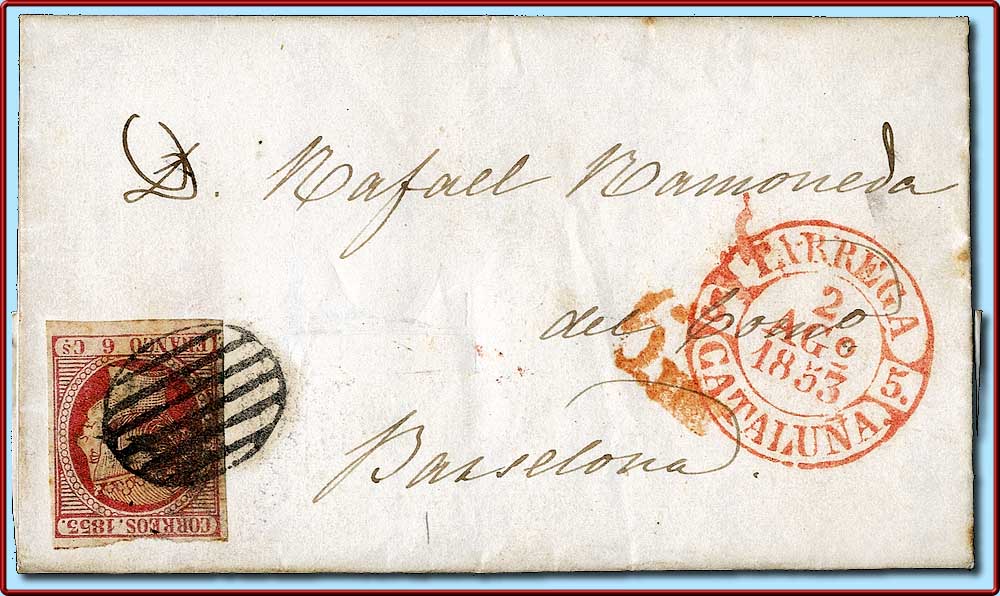 D. Rafael Ramoneda
del Comº
Barselona.
TARREGA
2
AGº
1853
CATALUÑA. 5.
FRANCO 6 Cs
CORREOS. 1853.